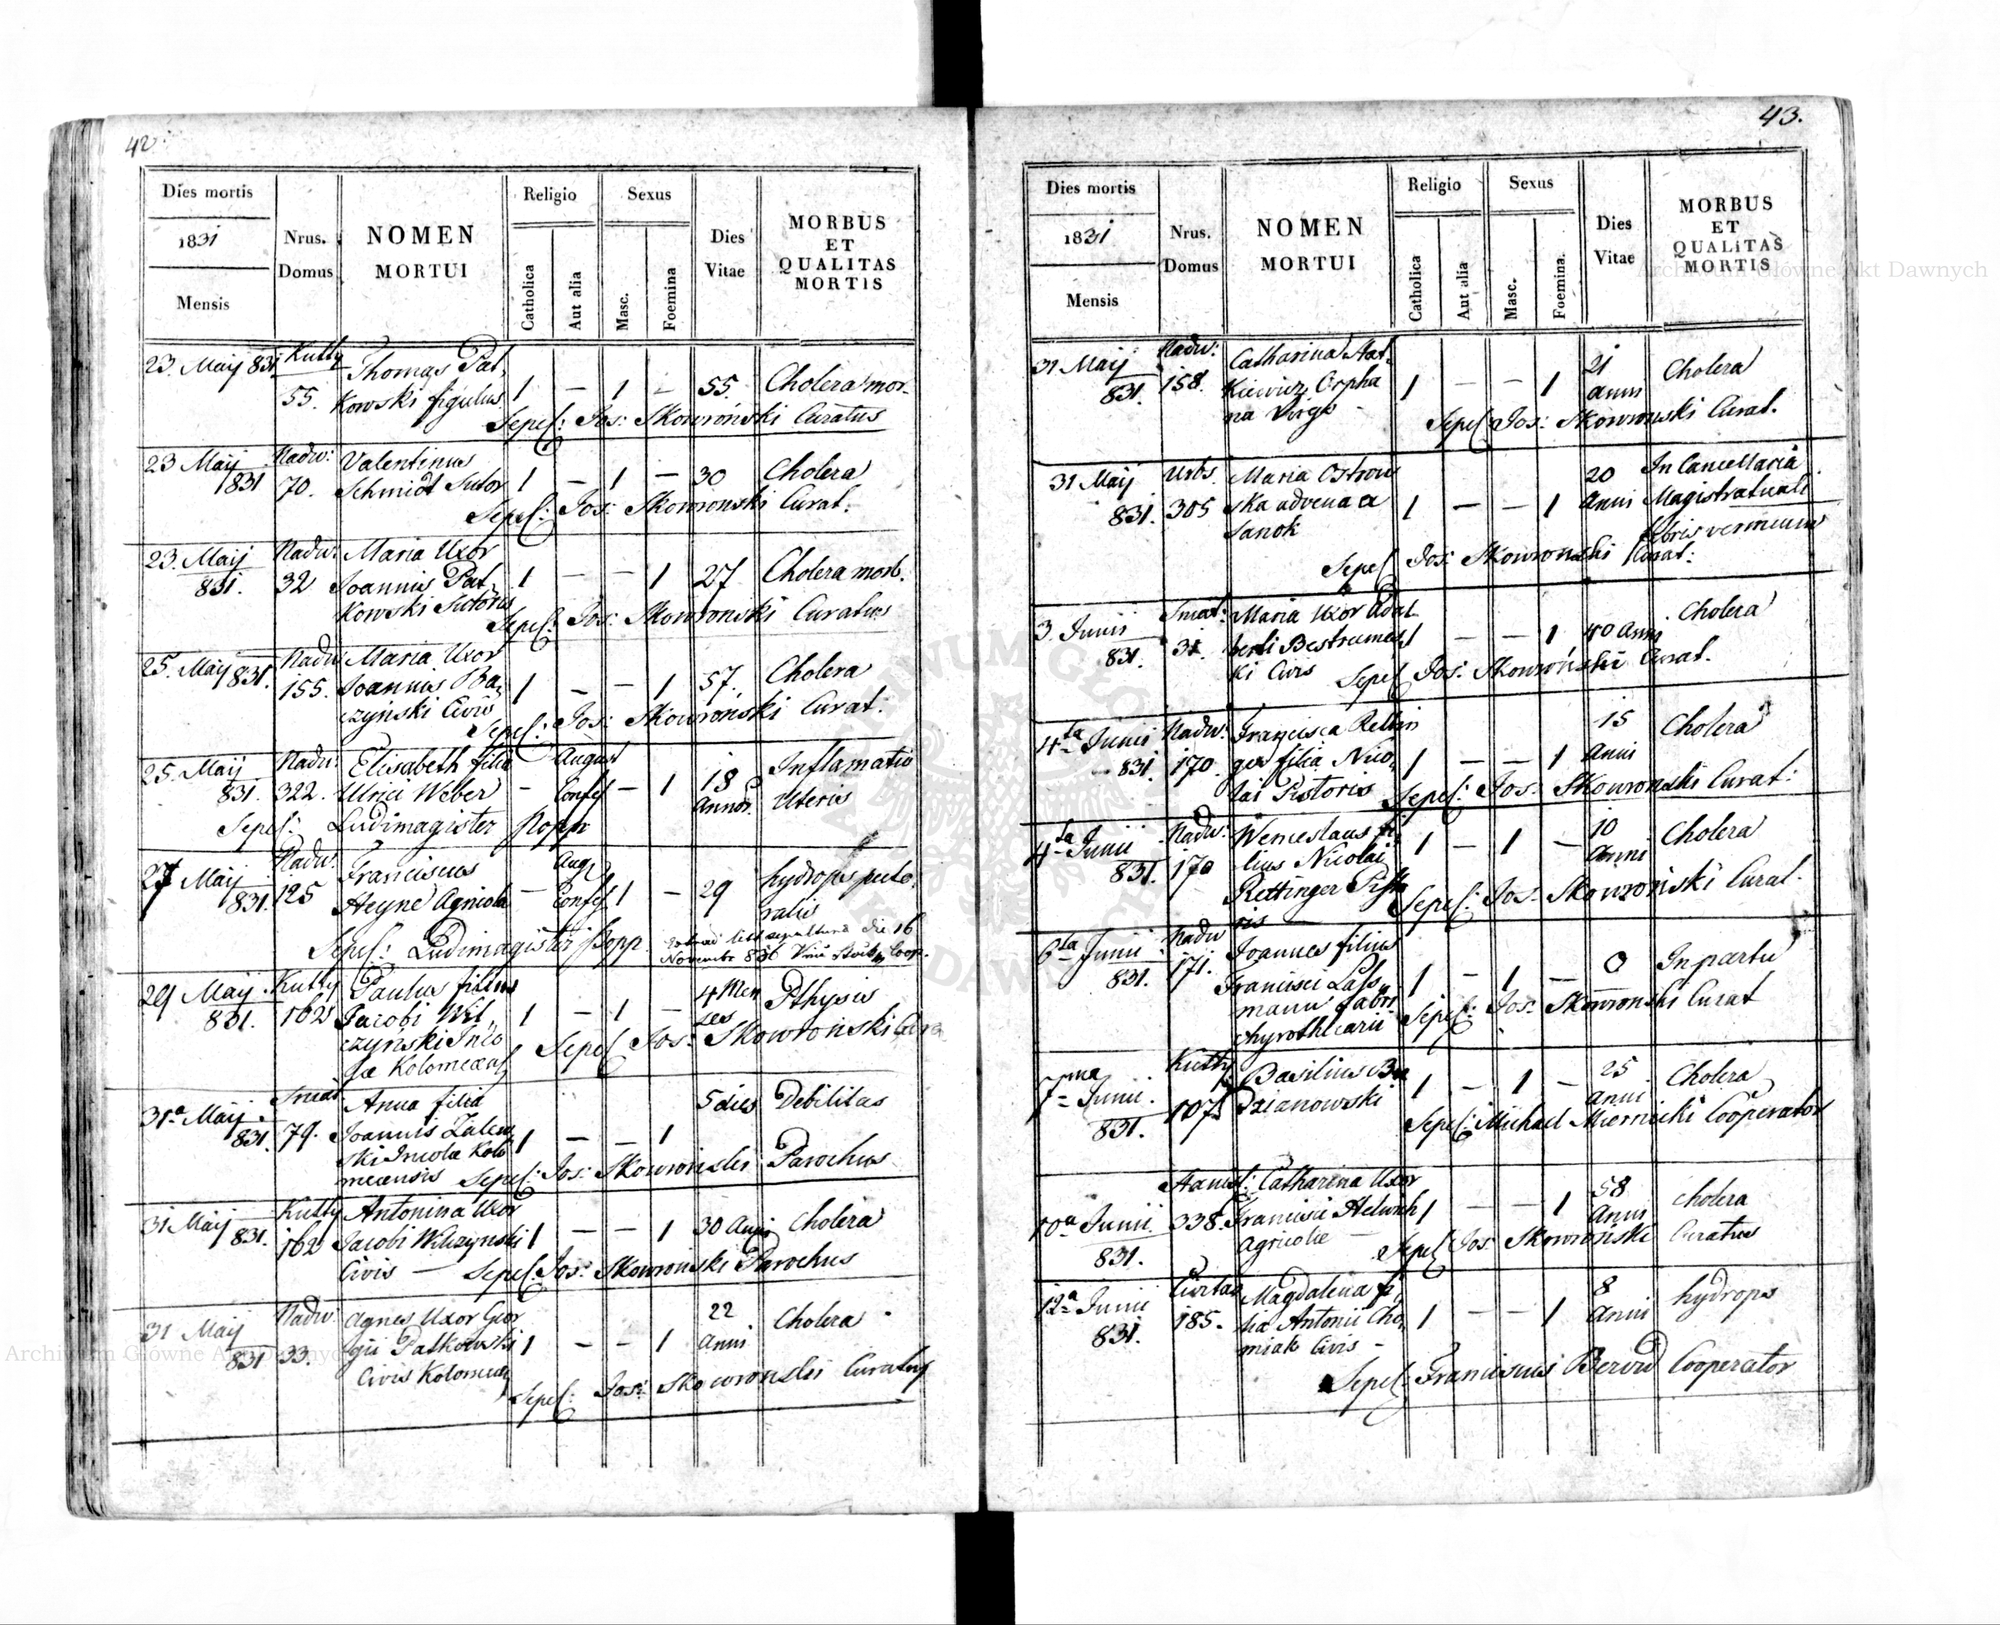 42.
Dies mortis
1831
Mensis
Nrus.
Domus
NOMEN
MORTUI
Religio
Catholica
Aut alia
Sexus
Masc.
Foemina
Dies
Vitae
MORBUS
ET
QUALITAS
MORTIS
23. Maij 831 Kutty Thomas Pat,
55. kowski figulus 1 — 1 — 55. Cholera mor.
Sepel: Jos: Skowroński Curatus
23 Maij Nadw: Valentinus
831 70. Schmidt Sutor 1 — 1 — 30 Cholera
Sepel: Jos: Skowronski Curat.
23. Maij Nadw: Maria Uxor
831. 32 Joannis Pat, 1 — — 1 27 Cholera morb.
kowski Sutoris
Sepel: Jos: Skowronski Curatus
25. Maij 831. Nadw: Maria Uxor
155. Joannis Ba, 1 — — 1 57. Cholera
czyński Civis
Sepel: Jos: Skowroński Curat.
25. Maij Nadw: Elisabeth filia August 18 Inflamatio
831. 322. Ulrici Weber — Confes — 1 Annor. Uteris
Sepel: Ludimagister Popp
27 Maij Nadw: Franciscus Aug,
831. 125 Heyne Agricola — Confes. 1 — 29 hydrops pecto,
ralis
Sepel: Ludimagister Popp. sepulturae die 16
Novembr 836 Coop.
29 Maij Kutty Paulus filius 4 Men
831. 162 Jacobi Wil, 1 — 1 — ses Pthysis
czyński Inco
lae Kolomeaes,
Sepel Jos: Skowroński Cura
31a Maij. Sniat Anna filia 5 dies Debilitas
831. 79. Joannis Zalew 1 — — 1
ski Incolae Kolo
meaensis Sepel: Jos: Skowroński Parochus
31 Maij Kutty Antonina Uxor
831. 162 Jacobi Wilczynski 1 — — 1 30 Anni Cholera
Civis — Sepel Jos: Skowroński Parochus
31 Maij Nadw: Agnes Uxor Geor 22 Cholera
831 33. gii Patkowski 1 — — 1 Anni
Civis Kolomeae,
Sepel: Jos: Skowronski Curatus
43.
Dies mortis
1831
Mensis
Nrus.
Domus
NOMEN
MORTUI
Religio
Catholica
Aut alia
Sexus
Masc.
Foemina.
Dies
Vitae
MORBUS
ET
QUALITAS
MORTIS
31 Maij Nadw: Catharina 21 Cholera
831. 158. kiewicz Orpha 1 — — 1 Anni
na Virgo —
Sepel Jos: Skowronski Curat.
31 Maij Urbs. Maria Ostrow 20 In Cancellaria
831. 305 ska advena a 1 — — 1 Anni Magistratuali
Sanok febris
Sepel Jos: Skowronski Curat:
3. Junii Sniat: Maria Uxor Adal Cholera
831. 31. berti 1 — — 1 40 Anni
ki Civis Sepel Jos: Skowroński Curat.
4ta Junii Nadw: Francisca Rettin 15 Cholera
831. 170. ger filia Nico, 1 — — 1 Anni
lai Pistoris Sepel: Jos: Skowronski Curat:
4ta Junii Nadw: Wenceslaus fi 10 Cholera
831. 170 lius Nicolai 1 — 1 — Anni
Rettinger Pisto
ris Sepel: Jos: Skowroński Curat.
6ta Junii Nadw Joannes filius
831. 171. Francisci Lass, 1 — 1 — 0 In partu
mann fabri
chyrothecarii Sepel: Jos: Skowronski Curat
7ma Junii. Kutty Basilius Bu 25 Cholera
831. 107. dzianowski 1 — 1 — Anni
Sepel: Michael Miernicki Cooperator
Stanisl: Catharina Uxor 58 Cholera
10a Junii. 338. Francisci Helwich 1 — — 1 Anni
831. Agricolae — Sepel Jos: Skowronski Curatus
12a Junii Civitas Magdalena fi, 8 hydrops
831. 185. lia Antonii Cho, 1 — — 1 Anni
miak Civis —
Sepel: Franciscus Cooperator
Archiwum Główne Akt Dawnych
Archiwum Główne Akt Dawnych